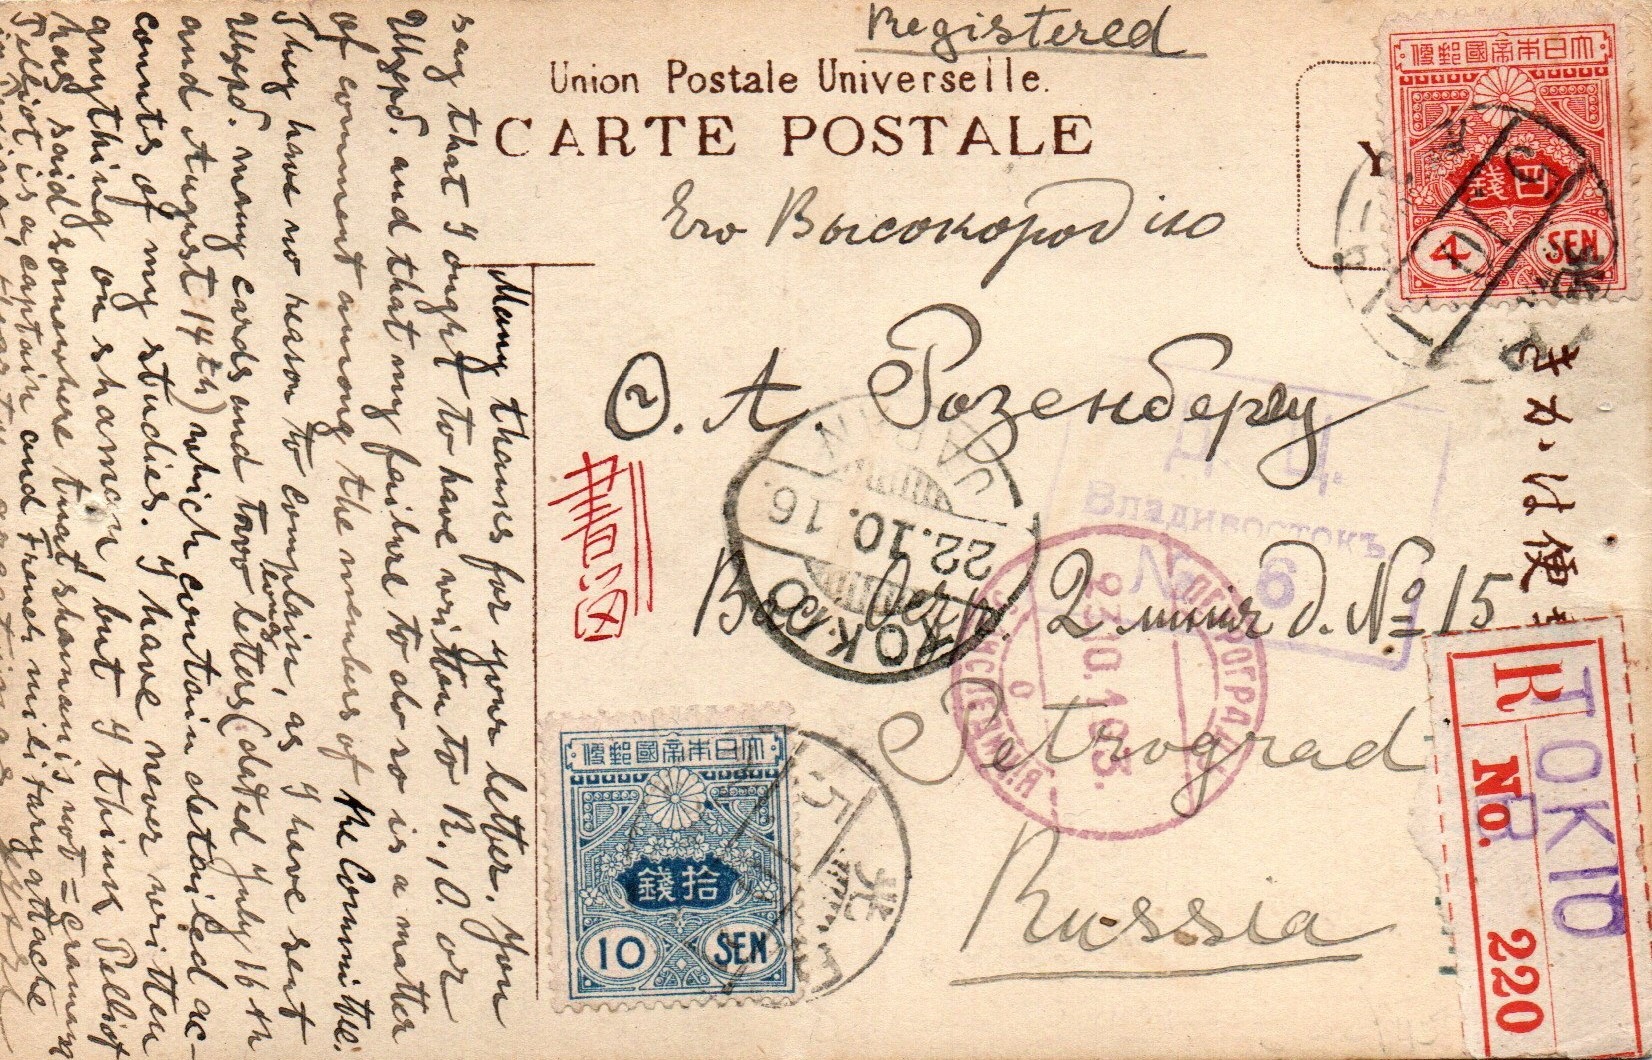 Registered
Union Postale Universelle.
CARTE POSTALE
Его Высокородію
Ѳ. А. Розенбергу
Вас. Остр. 2 линія д. № 15
Petrograd
Russia
Many thanks for your letter. You
say that I ought to have written to R., O. or
and that my failure to do so is a matter
of comment among the members of the Committee.
They have no reason to complain, as I have sent
many cards and two long letters (dated July 16th
and August 14th) which contain detailed ac-
counts of my studies. I have never written
anything on shaman, but I think Pelliot
has said somewhere that shaman is not = çramana
Pelliot is a captain and French military attaché
大日本帝國郵便
四錢
4 SEN
大日本帝國郵便
拾錢
10 SEN
きかは便郵
TOKIO
JAPAN
22.10.16.
Д. Ц.
Владивостокъ
№ 6
ПЕТРОГРАДЪ
ЭКСПЕДИЦІЯ
23.10.1913.
R TOKIO
B
No. 220